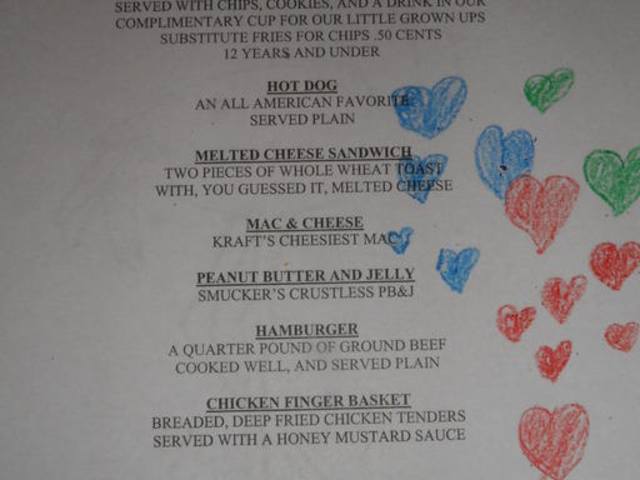 SERVED WITH CHIPS, COOKIES, AND A DRINK IN OUR
COMPLIMENTARY CUP FOR OUR LITTLE GROWN UPS
SUBSTITUTE FRIES FOR CHIPS .50 CENTS
12 YEARS AND UNDER
HOT DOG
AN ALL AMERICAN FAVORITE
SERVED PLAIN
MELTED CHEESE SANDWICH
TWO PIECES OF WHOLE WHEAT TOAST
WITH, YOU GUESSED IT, MELTED CHEESE
MAC & CHEESE
KRAFT'S CHEESIEST MAC
PEANUT BUTTER AND JELLY
SMUCKER'S CRUSTLESS PB&J
HAMBURGER
A QUARTER POUND OF GROUND BEEF
COOKED WELL, AND SERVED PLAIN
CHICKEN FINGER BASKET
BREADED, DEEP FRIED CHICKEN TENDERS
SERVED WITH A HONEY MUSTARD SAUCE